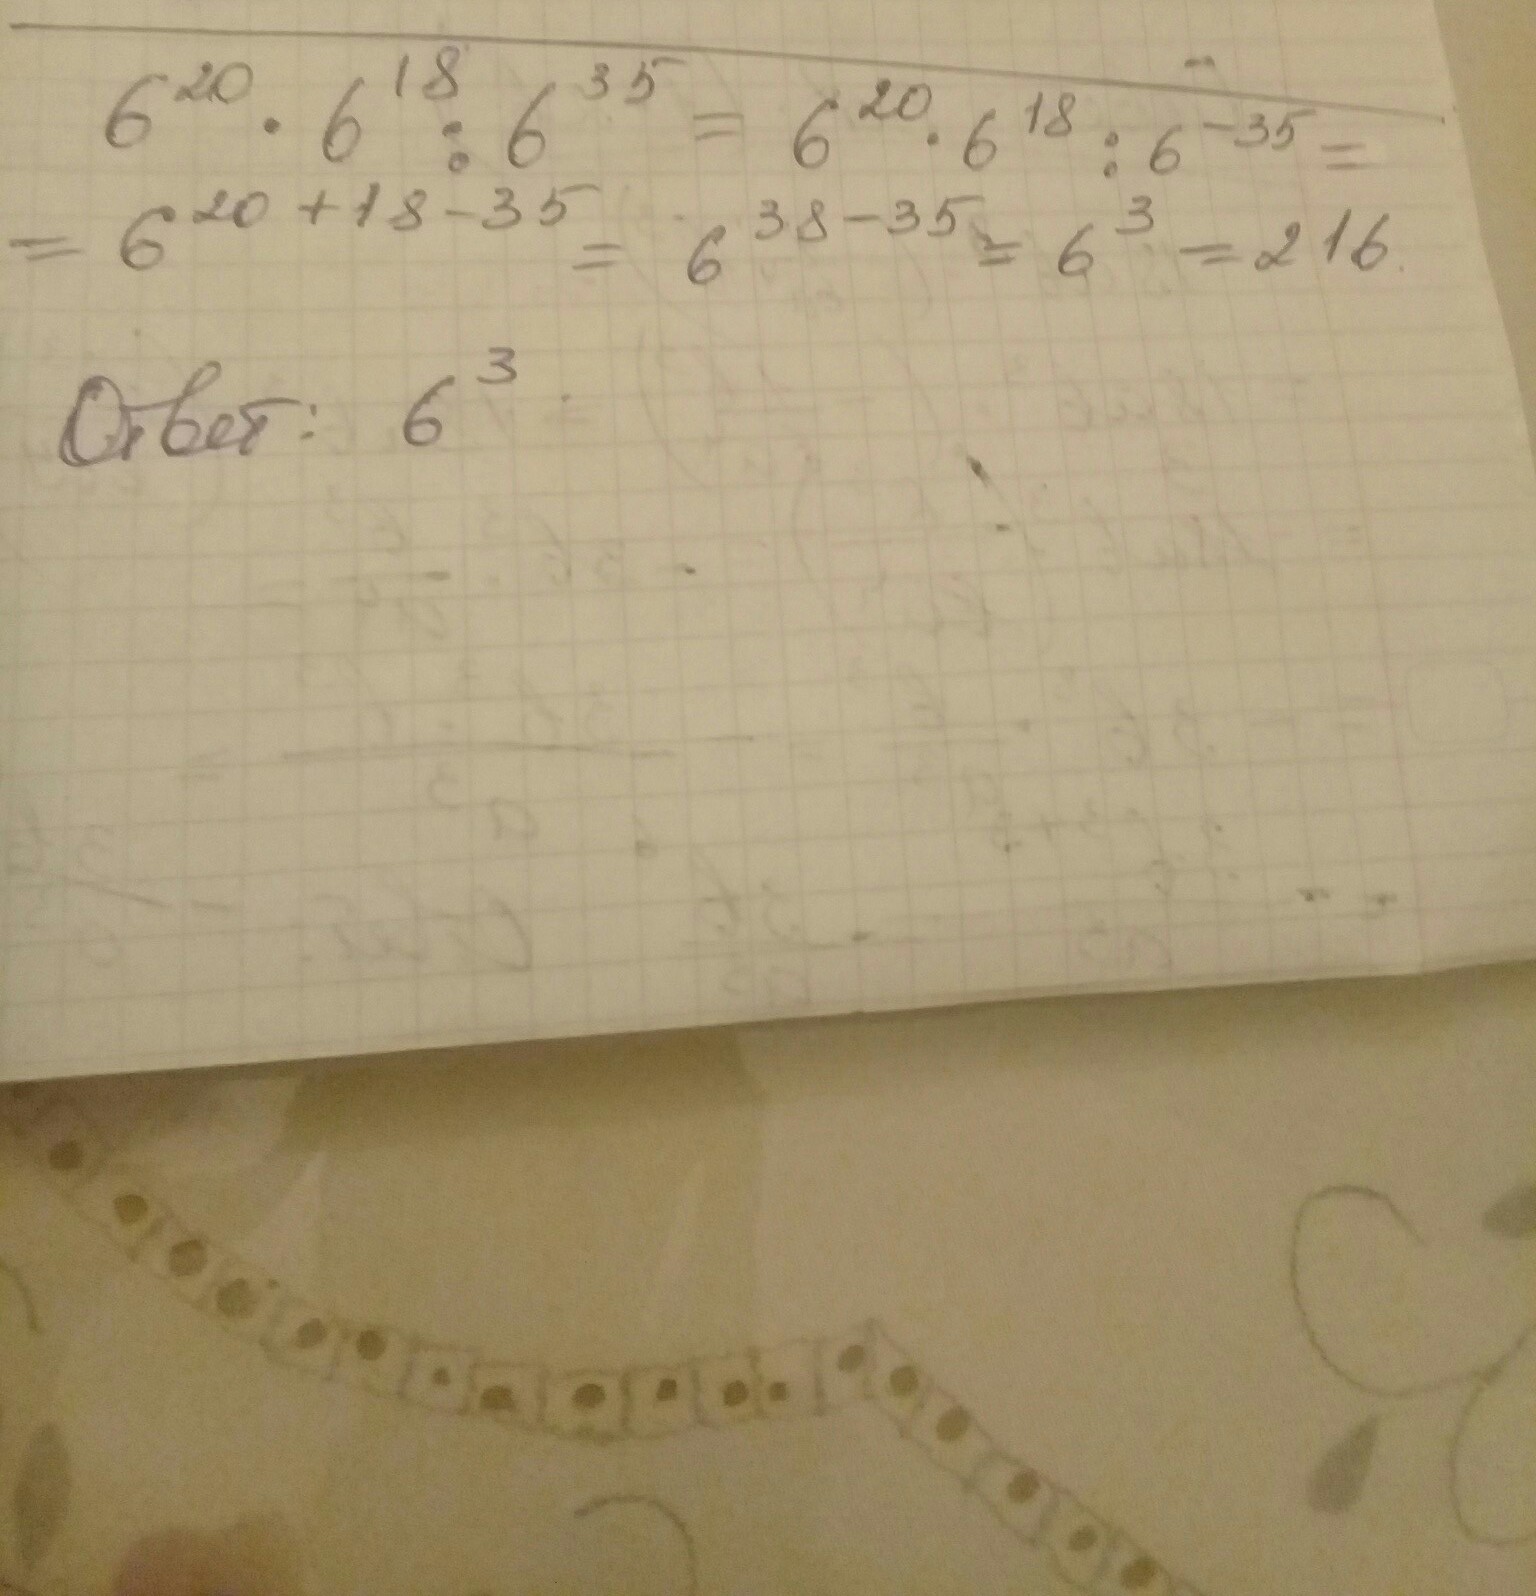 6²⁰ · 6¹⁸ : 6³⁵ = 6²⁰ · 6¹⁸ : 6⁻³⁵ =
= 6²⁰⁺¹⁸⁻³⁵ = 6³⁸⁻³⁵ = 6³ = 216.
Ответ: 6³